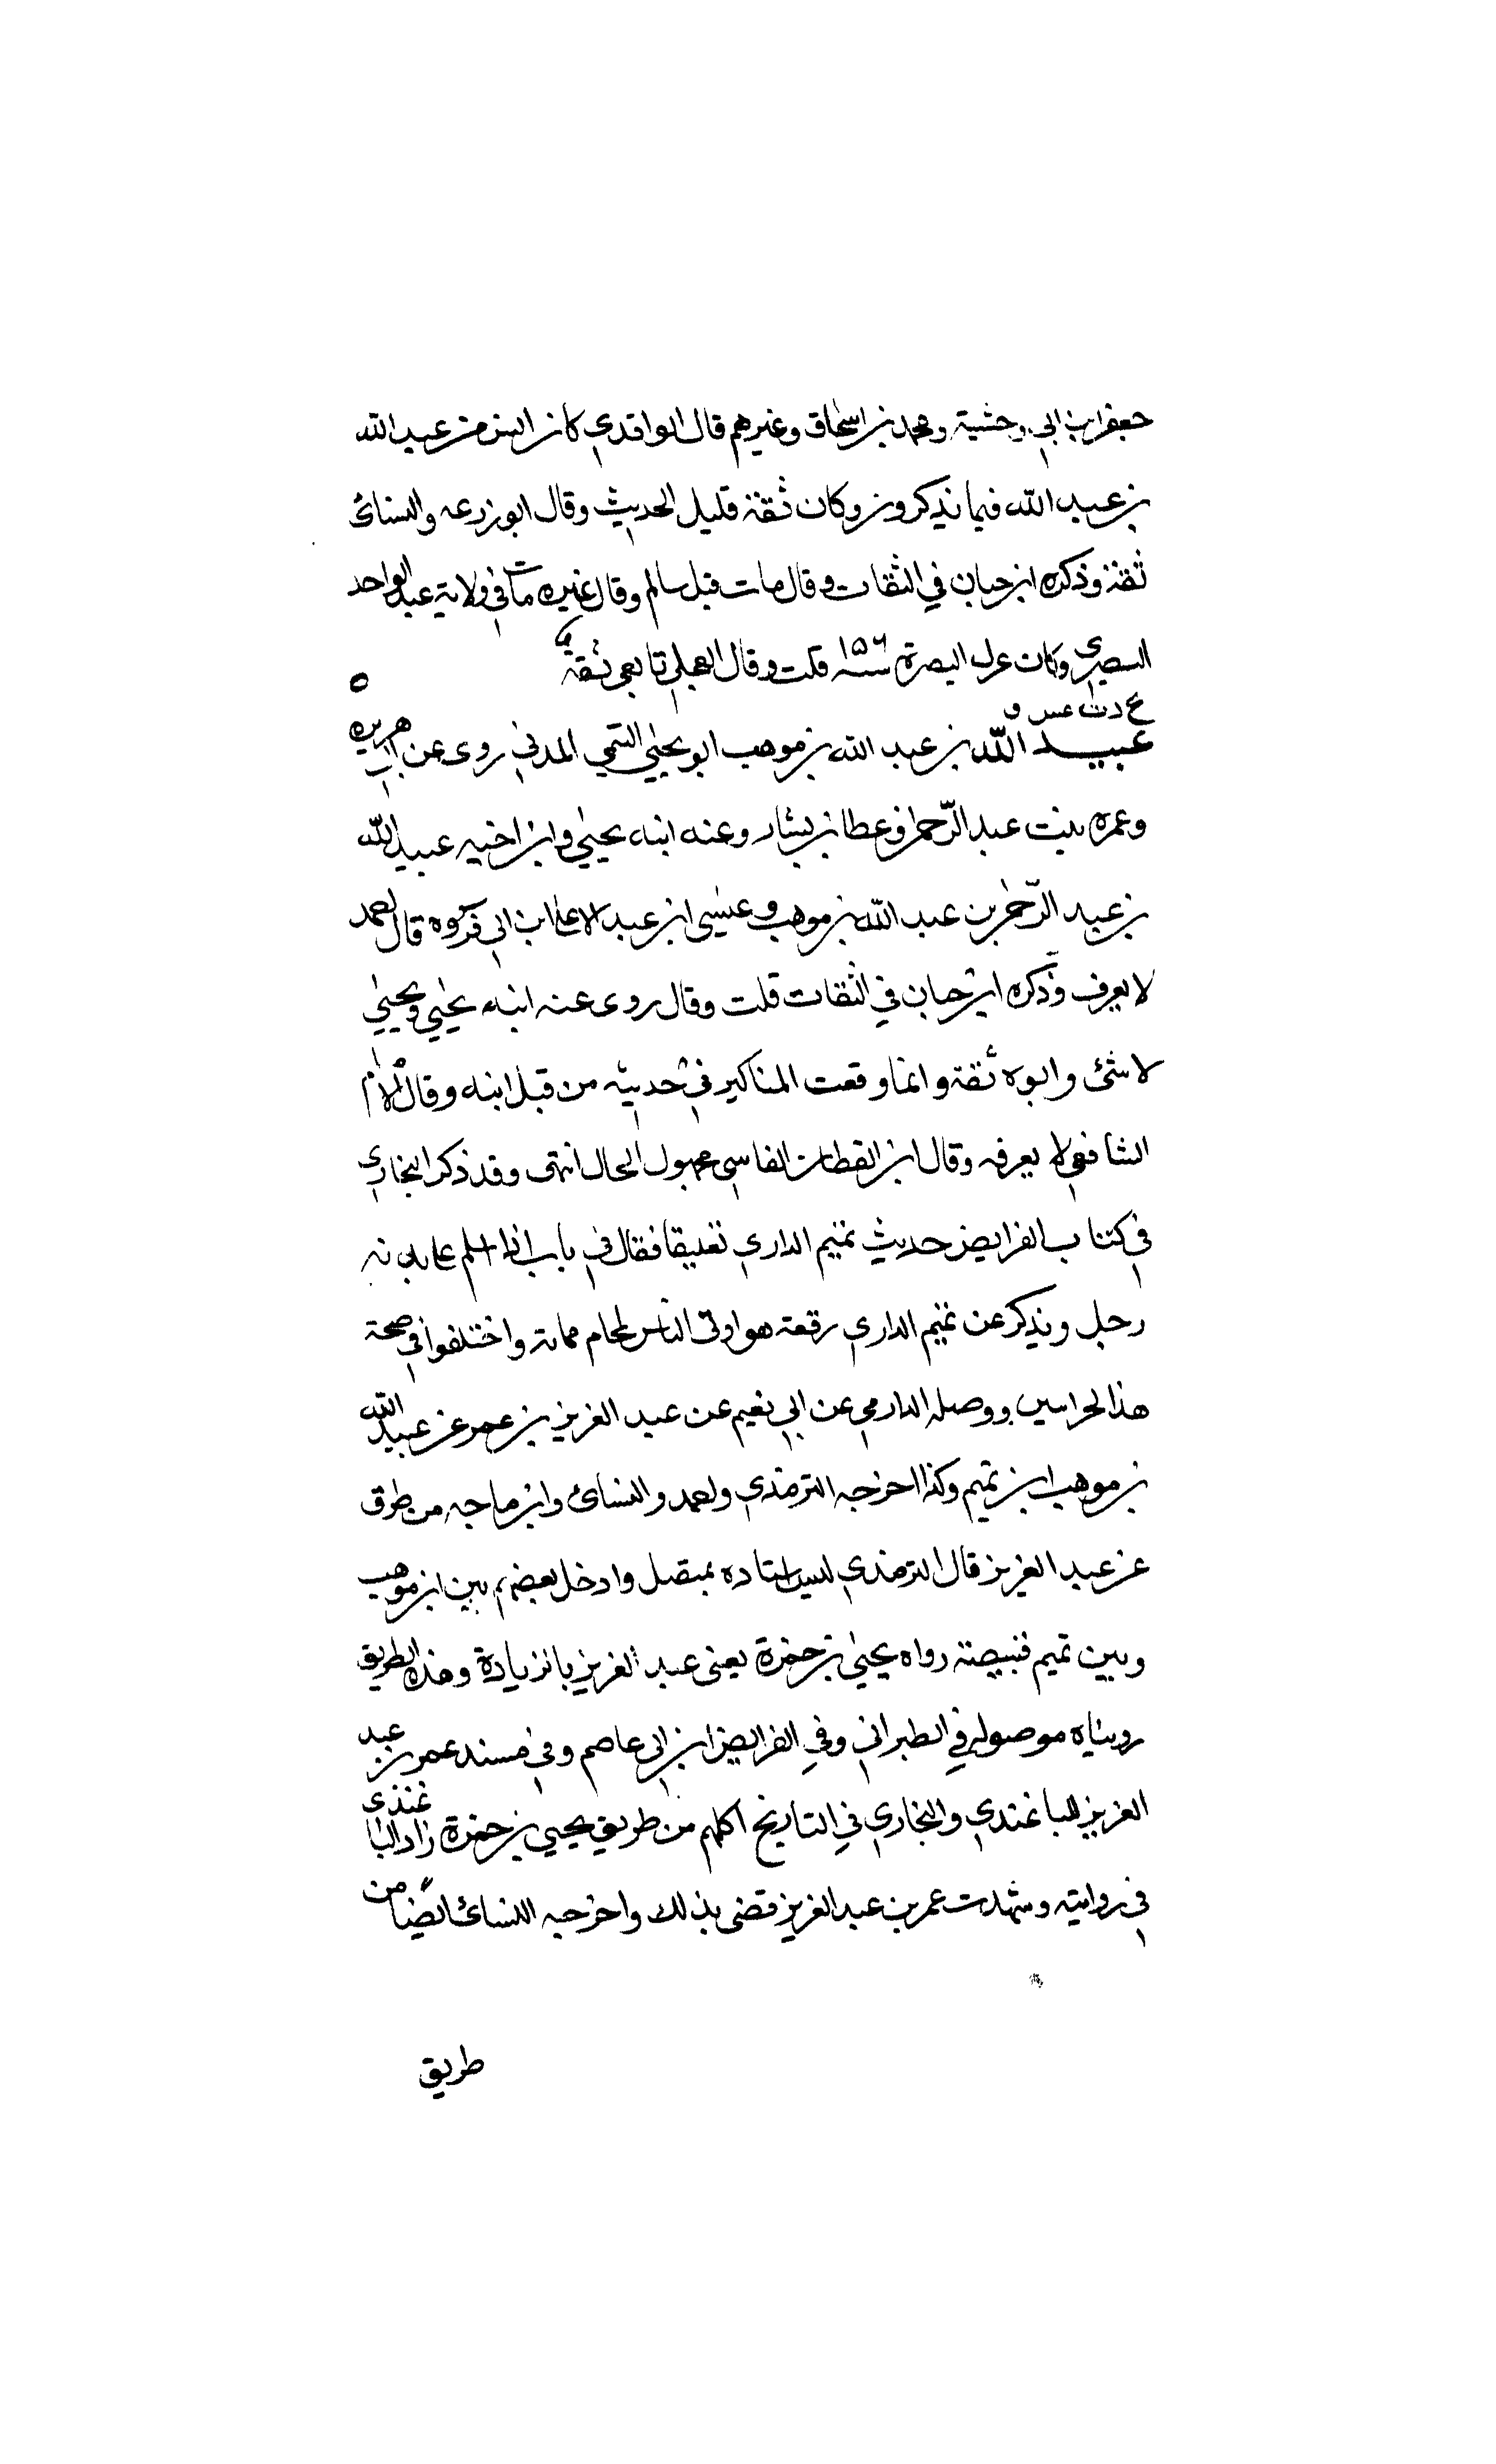 جعفر ابن ابي وحشية ومحمد بن اسحاق وغيرهم قال الواقدي كان اسن من عبد الله
بن عبد الله فيما يذكرون وكان ثقة قليل الحديث وقال ابو زرعه والنسائ
ثقة وذكره ابن حبان في الثقات وقال مات قبل سالم وقال غيره مات في ولاية عبد الواحد
البصري وكان عزل البصرة سنة ١٥٦ قلت وقال العجلي تابعي ثقة
ع د ت عس ق
عبيد الله بن عبد الله بن موهب ابو يحيى التيمي المدني روى عن ابي هريره
وعمره بنت عبد الرحمن وعطا بن يسار وعنه ابنه يحيى وابن اخيه عبيد الله
بن عبد الرحمن بن عبد الله بن موهب وعيسى ابن عبد الاعلا ابن ابي فروه قال احمد
لا يعرف وذكره ابن حبان في الثقات قلت وقال روى عنه ابنه يحيى ويحيى
لا شئ وابوه ثقة وانما وقعت المناكير في حديثه من قبل ابنه وقال الامام
الشافعي لا يعرفه وقال ابن القطان الفاسي مجهول الحال انتهى وقد ذكر البخاري
في كتاب الفرايض حديث تميم الداري تعليقا فقال في باب اذا اسلم على يديه
رجل ويذكر عن تميم الداري رفعه هو اولى الناس بمحياه ومماته واختلفوا في صحة
هذا الحراسين ووصله الدارمي عن ابي نعيم عن عبد العزيز بن عمر عن عبيد الله
بن موهب ابن تميم وكذا اخرجه الترمذي واحمد والنسائ وابن ماجه من طرق
عن عبد العزيز قال الترمذي ليس اسناده بمتصل وادخل بعضهم بين ابن موهب
وبين تميم قبيصة رواه يحيى بن حمزة يعنى عبد العزيز بالزيادة وهذه الطريق
رويناه موصوله في الطبراني وفي الفرايض ابن ابي عاصم وفي مسند عمر بن عبد
العزيز للباغندي والبخاري في التاريخ اكلهم من طريق يحيى بن حمزة زاد الباغندى
في روايته وشهدت عمر بن عبد العزيز قضى بذلك واخرجه النسائ ايضا من
طريق